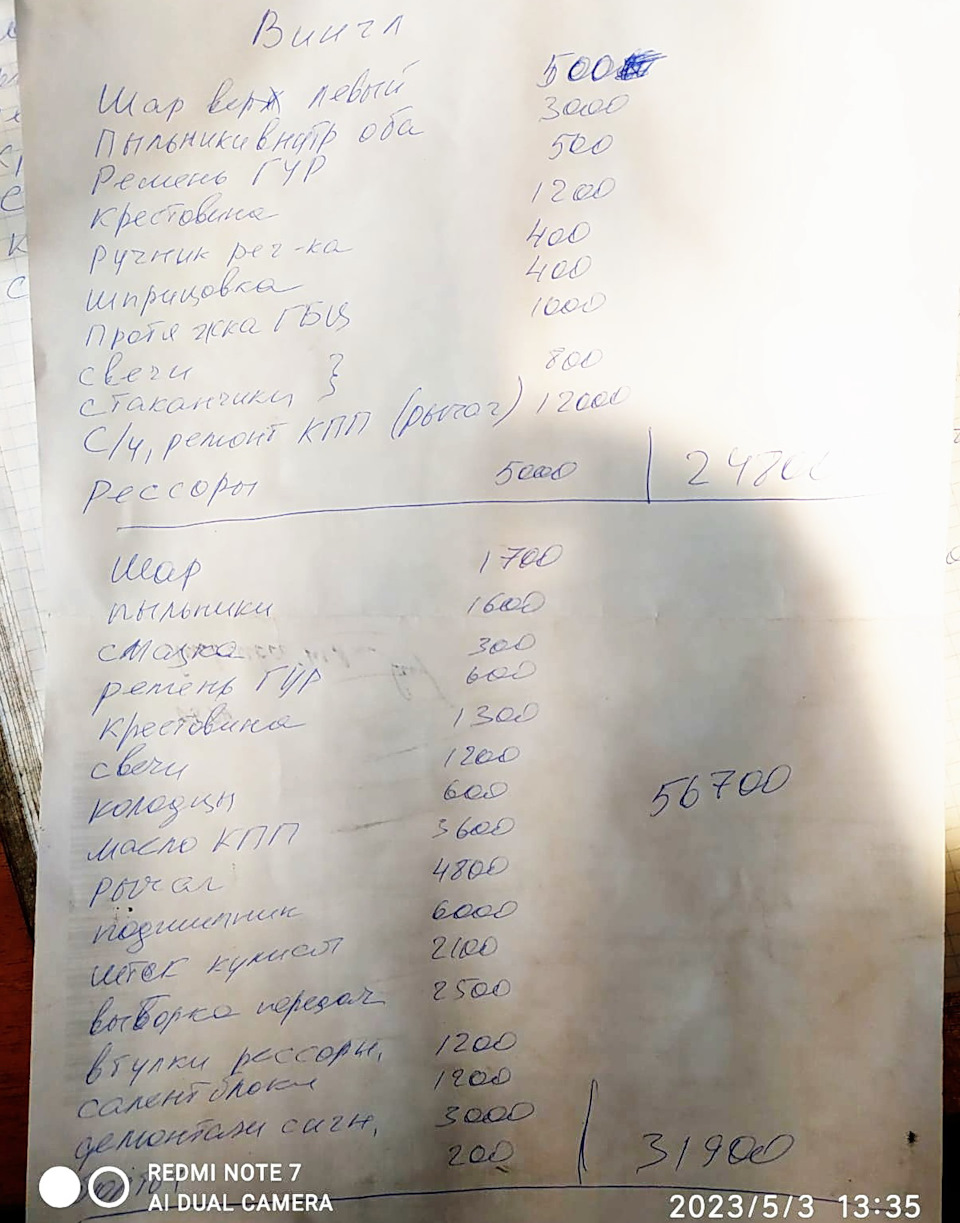 Вингл
Шар верх левый 500
Пыльники внутр оба 3000
Ремень ГУР 500
крестовина 1200
ручник рег-ка 400
шприцовка 400
Протяжка ГБЦ 1000
свечи }
стаканчики } 800
С/у, ремонт КПП (рычаг) 12000
Рессоры 5000 | 24800
Шар 1700
пыльники 1600
смазка 300
ремень ГУР 600
Крестовина 1300
свечи 1200
колодцы 600
56700
масло КПП 3600
рычаг 4800
подшипник 6000
шток кулисы 2100
выборка передач 2500
втулки рессоры, 1200
салентблоки 1200
демонтаж сигн, 3000
200 | 31900
REDMI NOTE 7
AI DUAL CAMERA
2023/5/3 13:35